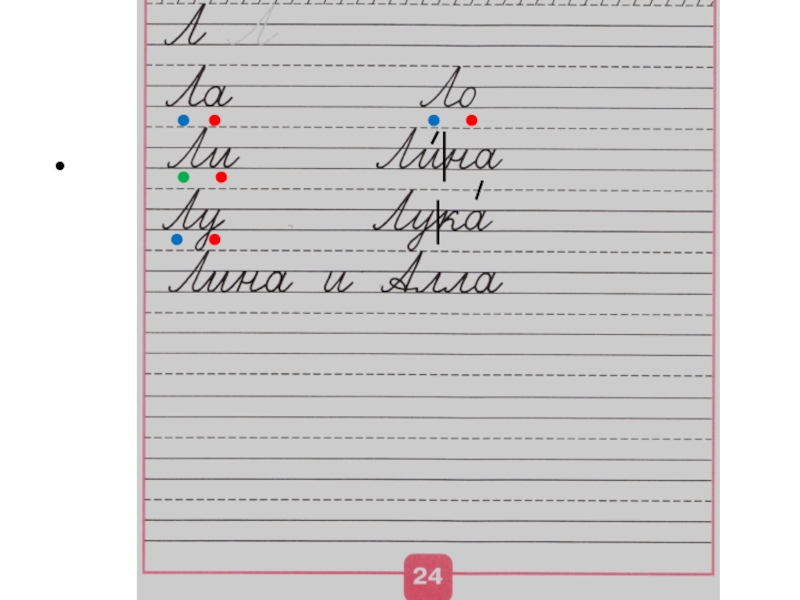 Л Л
Ла Ло
Ли Ли́|на
Лу Лу|ка́
Лина и Алла
24